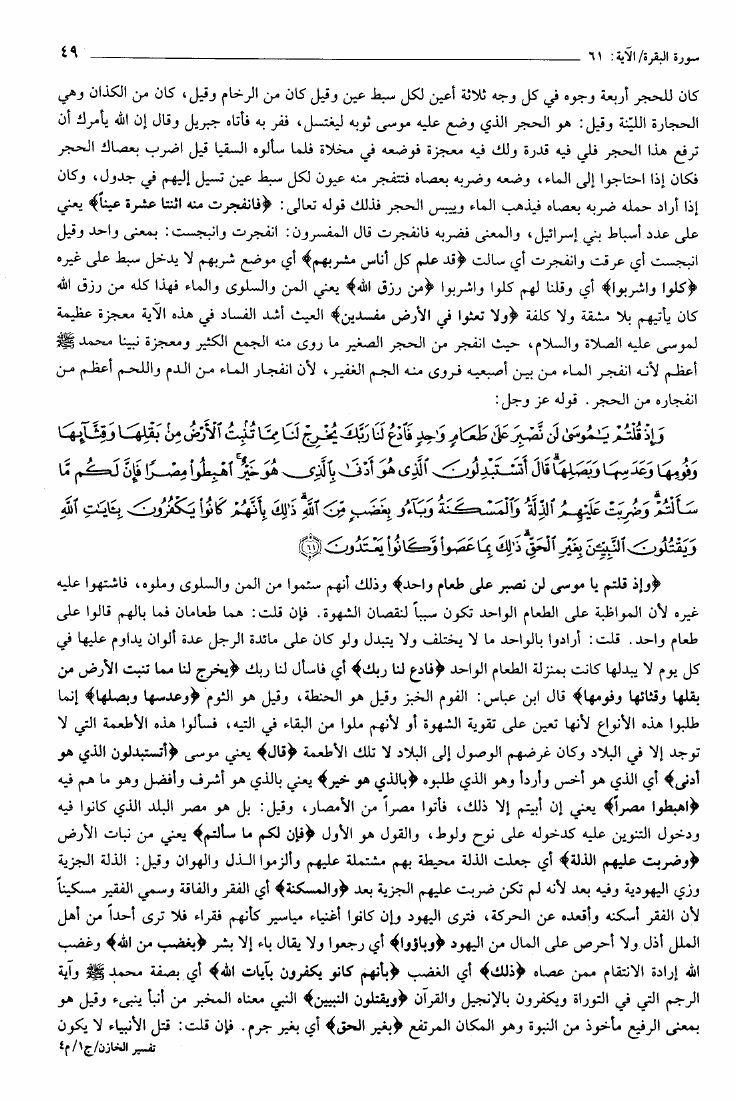 سورة البقرة/الآية: ٦١ ٤٩
كان للحجر أربعة وجوه في كل وجه ثلاثة أعين لكل سبط عين وقيل كان من الرخام وقيل، كان من الكذان وهي
الحجارة الليّنة وقيل: هو الحجر الذي وضع عليه موسى ثوبه ليغتسل، ففر به فأتاه جبريل وقال إن الله يأمرك أن
ترفع هذا الحجر فلي فيه قدرة ولك فيه معجزة فوضعه في مخلاة فلما سألوه السقيا قيل اضرب بعصاك الحجر
فكان إذا احتاجوا إلى الماء، وضعه وضربه بعصاه فتتفجر منه عيون لكل سبط عين تسيل إليهم في جدول، وكان
إذا أراد حمله ضربه بعصاه فيذهب الماء وييبس الحجر فذلك قوله تعالى: ﴿فانفجرت منه اثنتا عشرة عيناً﴾ يعني
على عدد أسباط بني إسرائيل، والمعنى فضربه فانفجرت قال المفسرون: انفجرت وانبجست: بمعنى واحد وقيل
انبجست أي عرقت وانفجرت أي سالت ﴿قد علم كل أناس مشربهم﴾ أي موضع شربهم لا يدخل سبط على غيره
﴿كلوا واشربوا﴾ أي وقلنا لهم كلوا واشربوا ﴿من رزق الله﴾ يعني المن والسلوى والماء فهذا كله من رزق الله
كان يأتيهم بلا مشقة ولا كلفة ﴿ولا تعثوا في الأرض مفسدين﴾ العيث أشد الفساد في هذه الآية معجزة عظيمة
لموسى عليه الصلاة والسلام، حيث انفجر من الحجر الصغير ما روى منه الجمع الكثير ومعجزة نبينا محمد ﷺ
أعظم لأنه انفجر الماء من بين أصبعيه فروى منه الجم الغفير، لأن انفجار الماء من الدم واللحم أعظم من
انفجاره من الحجر. قوله عز وجل:
وَإِذْ قُلْتُمْ يَٰمُوسَىٰ لَن نَّصْبِرَ عَلَىٰ طَعَامٍ وَٰحِدٍ فَٱدْعُ لَنَا رَبَّكَ يُخْرِجْ لَنَا مِمَّا تُنۢبِتُ ٱلْأَرْضُ مِنۢ بَقْلِهَا وَقِثَّآئِهَا
وَفُومِهَا وَعَدَسِهَا وَبَصَلِهَا ۖ قَالَ أَتَسْتَبْدِلُونَ ٱلَّذِى هُوَ أَدْنَىٰ بِٱلَّذِى هُوَ خَيْرٌ ۚ ٱهْبِطُوا۟ مِصْرًا فَإِنَّ لَكُم مَّا
سَأَلْتُمْ ۗ وَضُرِبَتْ عَلَيْهِمُ ٱلذِّلَّةُ وَٱلْمَسْكَنَةُ وَبَآءُو بِغَضَبٍ مِّنَ ٱللَّهِ ۗ ذَٰلِكَ بِأَنَّهُمْ كَانُوا۟ يَكْفُرُونَ بِـَٔايَٰتِ ٱللَّهِ
وَيَقْتُلُونَ ٱلنَّبِيِّـۧنَ بِغَيْرِ ٱلْحَقِّ ۗ ذَٰلِكَ بِمَا عَصَوا۟ وَّكَانُوا۟ يَعْتَدُونَ ٦١
﴿وإذ قلتم يا موسى لن نصبر على طعام واحد﴾ وذلك أنهم سئموا من المن والسلوى وملوه، فاشتهوا عليه
غيره لأن المواظبة على الطعام الواحد تكون سبباً لنقصان الشهوة. فإن قلت: هما طعامان فما بالهم قالوا على
طعام واحد. قلت: أرادوا بالواحد ما لا يختلف ولا يتبدل ولو كان على مائدة الرجل عدة ألوان يداوم عليها في
كل يوم لا يبدلها كانت بمنزلة الطعام الواحد ﴿فادع لنا ربك﴾ أي فاسأل لنا ربك ﴿يخرج لنا مما تنبت الأرض من
بقلها وقثائها وفومها﴾ قال ابن عباس: الفوم الخبز وقيل هو الحنطة، وقيل هو الثوم ﴿وعدسها وبصلها﴾ إنما
طلبوا هذه الأنواع لأنها تعين على تقوية الشهوة أو لأنهم ملوا من البقاء في التيه، فسألوا هذه الأطعمة التي لا
توجد إلا في البلاد وكان غرضهم الوصول إلى البلاد لا تلك الأطعمة ﴿قال﴾ يعني موسى ﴿أتستبدلون الذي هو
أدنى﴾ أي الذي هو أخس وأردأ وهو الذي طلبوه ﴿بالذي هو خير﴾ يعني بالذي هو أشرف وأفضل وهو ما هم فيه
﴿اهبطوا مصراً﴾ يعني إن أبيتم إلا ذلك، فأتوا مصراً من الأمصار، وقيل: بل هو مصر البلد الذي كانوا فيه
ودخول التنوين عليه كدخوله على نوح ولوط، والقول هو الأول ﴿فإن لكم ما سألتم﴾ يعني من نبات الأرض
﴿وضربت عليهم الذلة﴾ أي جعلت الذلة محيطة بهم مشتملة عليهم وألزموا الذل والهوان وقيل: الذلة الجزية
وزي اليهودية وفيه بعد لأنه لم تكن ضربت عليهم الجزية بعد ﴿والمسكنة﴾ أي الفقر والفاقة وسمي الفقير مسكيناً
لأن الفقر أسكنه وأقعده عن الحركة، فترى اليهود وإن كانوا أغنياء مياسير كأنهم فقراء فلا ترى أحداً من أهل
الملل أذل ولا أحرص على المال من اليهود ﴿وباؤوا﴾ أي رجعوا ولا يقال باء إلا بشر ﴿بغضب من الله﴾ وغضب
الله إرادة الانتقام ممن عصاه ﴿ذلك﴾ أي الغضب ﴿بأنهم كانو يكفرون بآيات الله﴾ أي بصفة محمد ﷺ وآية
الرجم التي في التوراة ويكفرون بالإنجيل والقرآن ﴿ويقتلون النبيين﴾ النبي معناه المخبر من أنبأ ينبىء وقيل هو
بمعنى الرفيع مأخوذ من النبوة وهو المكان المرتفع ﴿بغير الحق﴾ أي بغير جرم. فإن قلت: قتل الأنبياء لا يكون
تفسير الخازن/ج١/م٤